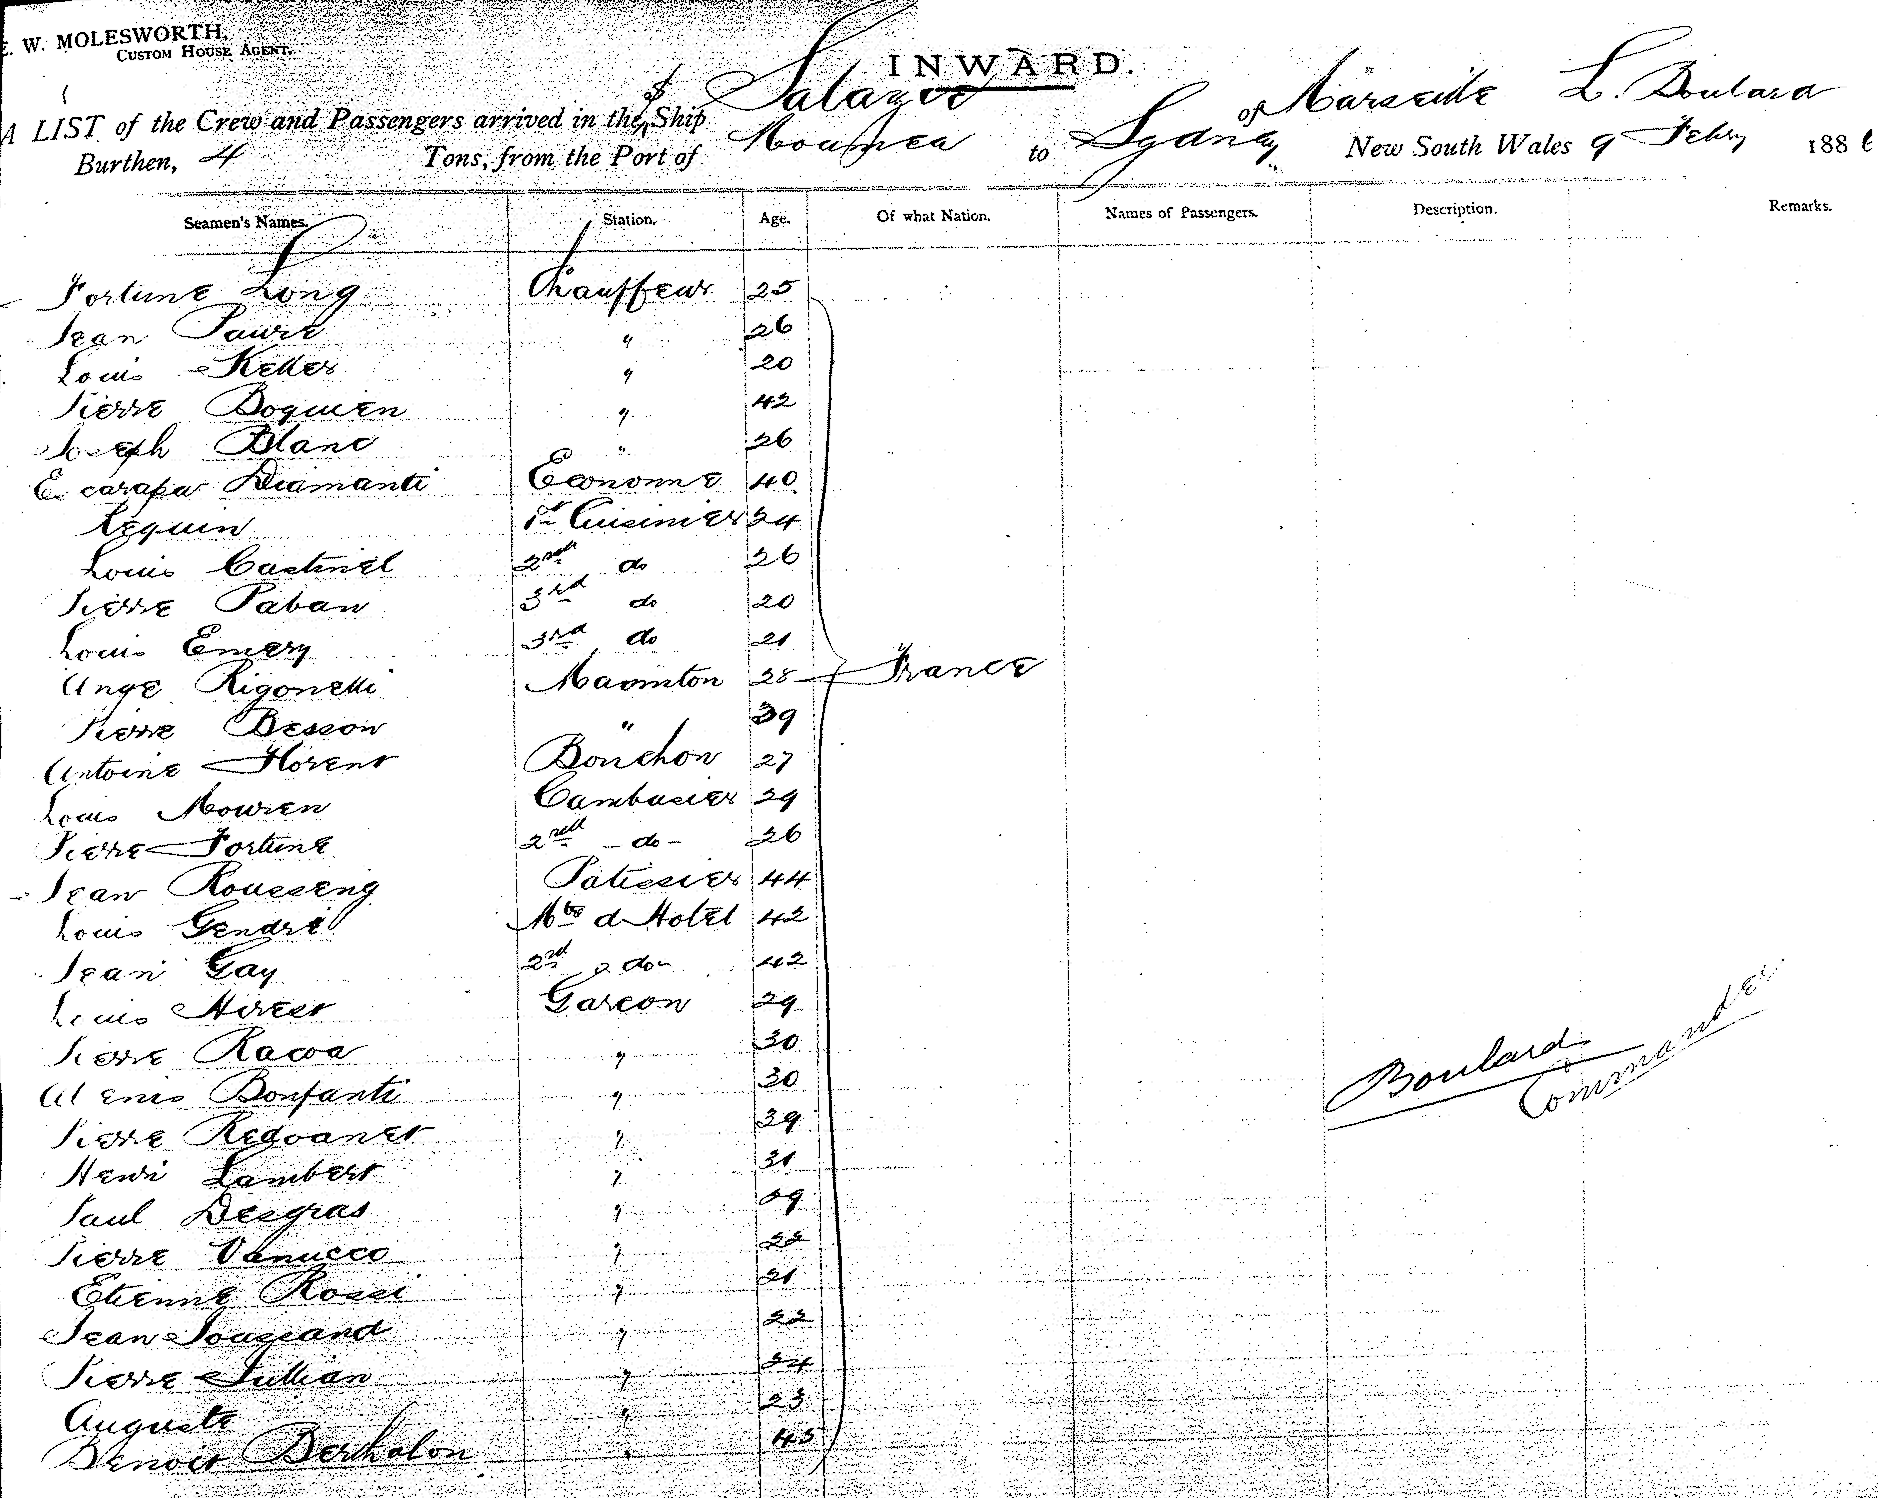 E. W. MOLESWORTH,
CUSTOM HOUSE AGENT.
INWARD.
A LIST of the Crew and Passengers arrived in the S Ship Salazie of Marseille L. Boulard
Burthen, 4 Tons, from the Port of Noumea to Sydney New South Wales 9 Feby 188
Seamen's Names. Station. Age. Of what Nation. Names of Passengers. Description. Remarks.
Fortune Long Chauffeur 25
Jean Pawre " 26
Louis Keller " 20
Pierre Boquien " 42
Joseph Blanc " 26
Escarapa Diamanti Econome 40
Lequin 1r Cuisinier 34
Louis Castinel 2nd do 26
Pierre Paban 3rd do 20
Louis Emery 3rd do 21
Ange Rigonelli Marmiton 28 France
Pierre Besson " 39
Antoine Florent Bouchon 27
Louis Mouren Cambusier 29
Pierre Fortune 2nd - do - 26
Jean Rousseng Patissier 44
Louis Gendre Mtre d Hotel 42
Jean Gay 2nd do 42
Louis Hirest Garcon 29
Pierre Racoa " 30
Bonfanti " 30
Pierre Redoanet " 39
Henri Lambert " 31
Paul Desgras " 39
Pierre Vanucco " 22
Etienne Rossi " 21
Jean Joussand " 22
Pierre Jullian " 34
Auguste " 23
Benoit Bertholon " 45
Boulard
Commander